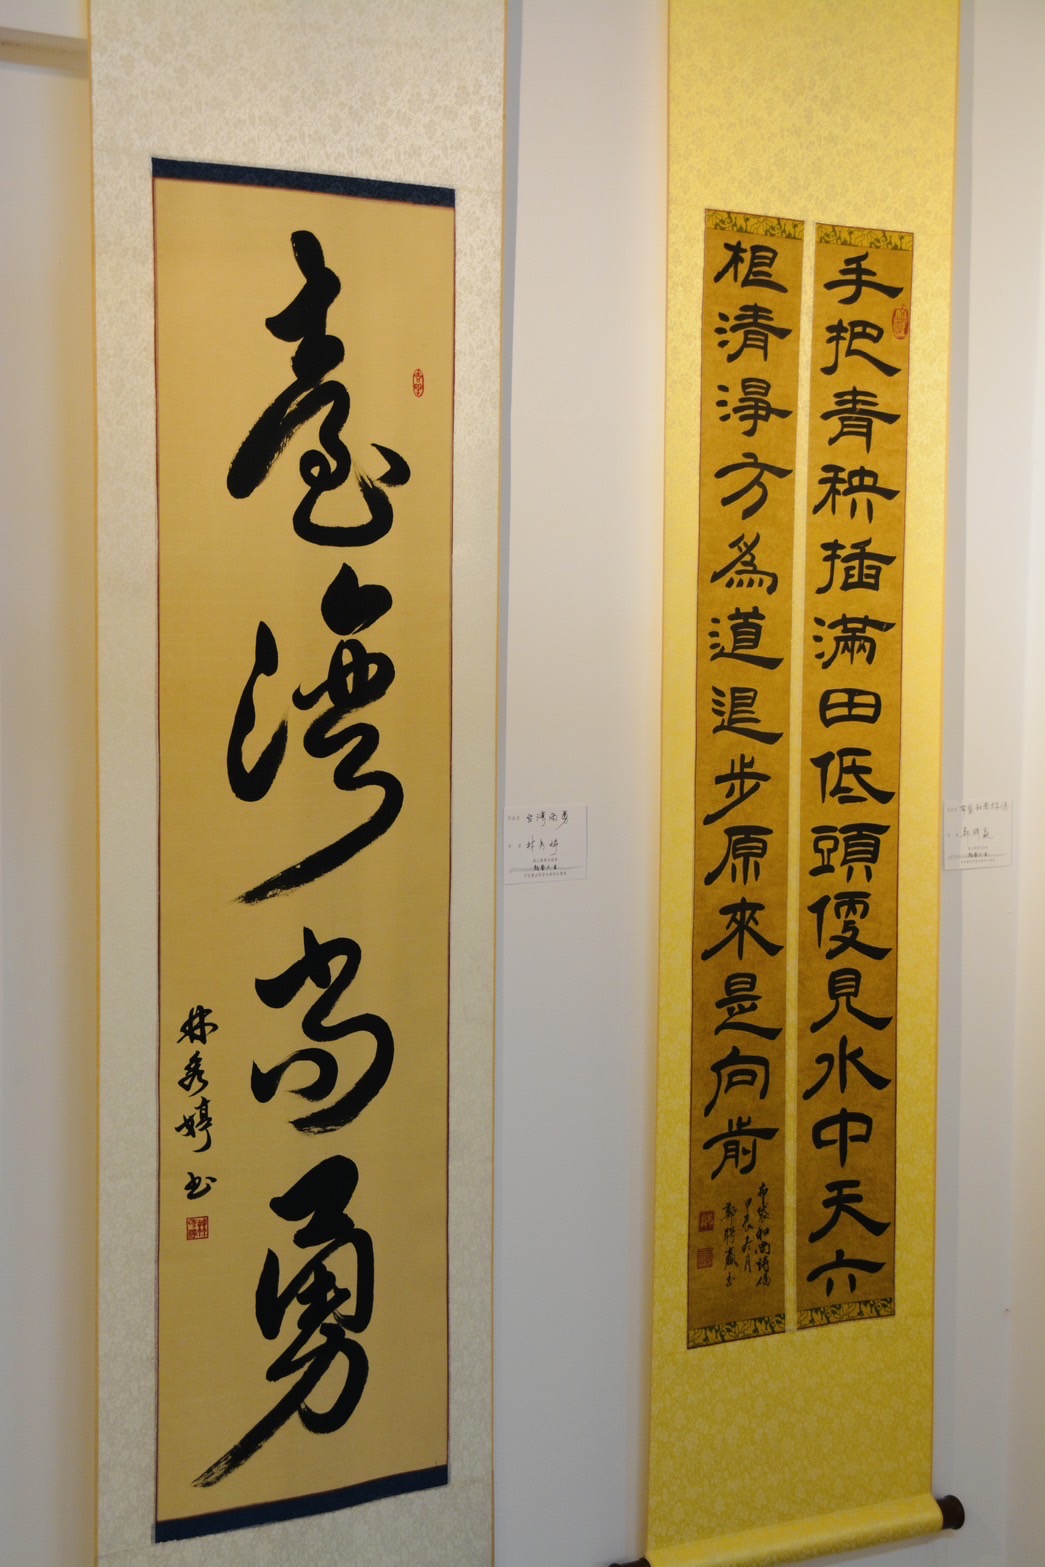 手把青秧插滿田低頭便見水中天六
根清淨方為道退步原來是向前
布袋和尚詩偈
甲辰
臺灣尚勇
林秀婷书
台灣尚勇
林秀婷